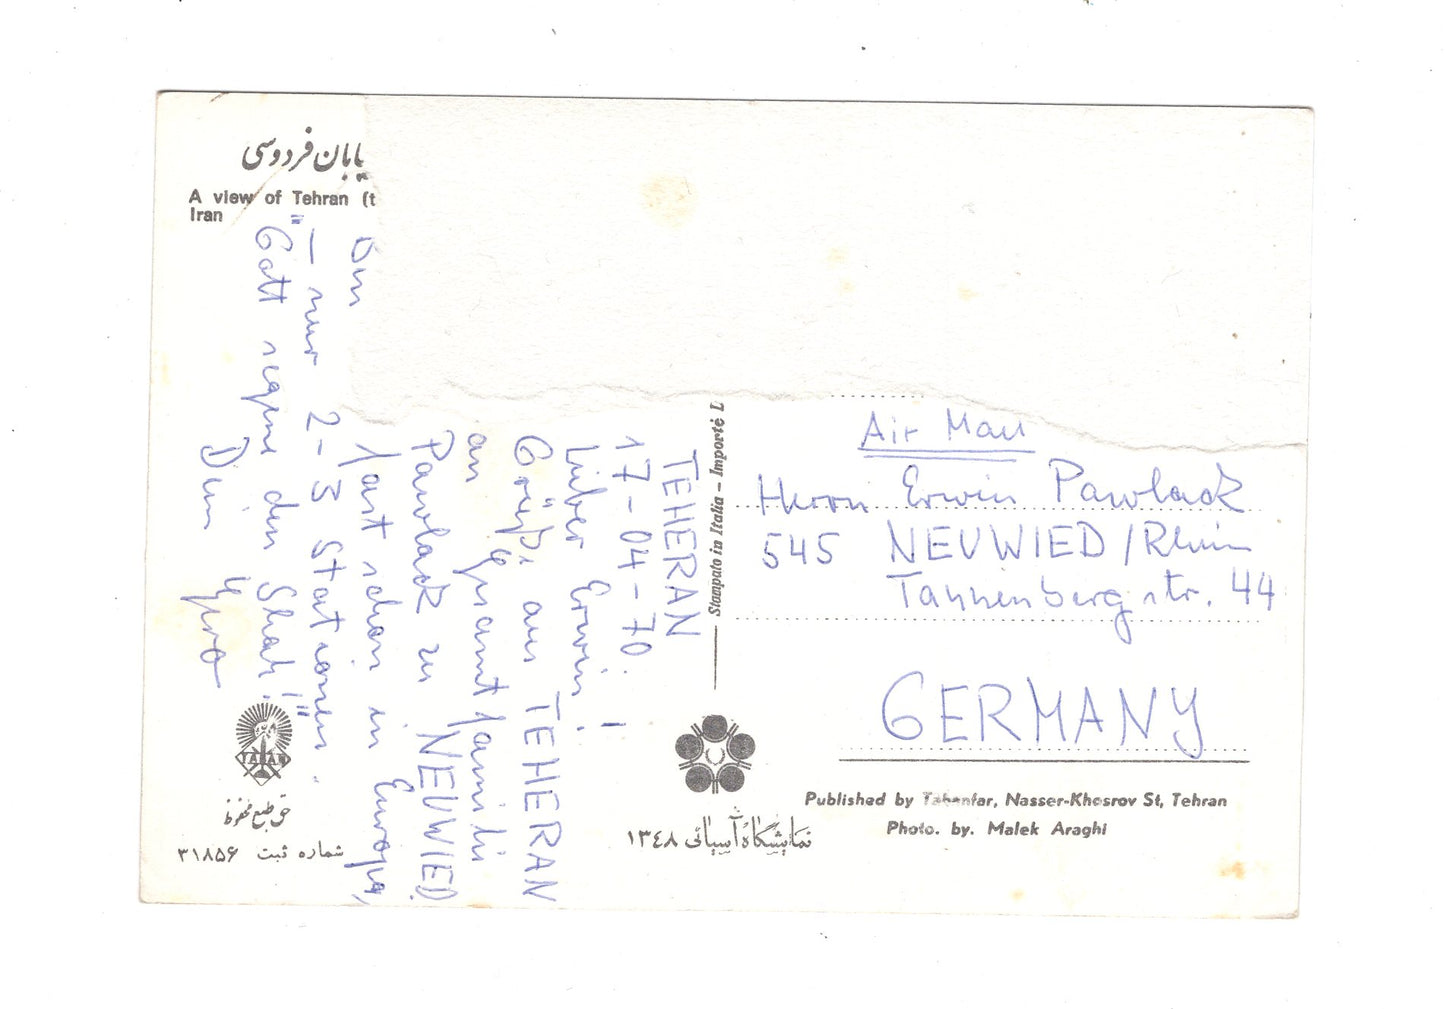 یابان فردوسی
A view of Tehran (t
Iran
TEHERAN
17-04-70.
Lieber Erwin!
Grüße aus TEHERAN
an Gesamtfamilie
Pawlack zu NEUWIED.
Fast schon in Europa,
— nur 2-3 Stationen.
"Gott segne den Shah!"
Dein
TABAN
حق طبع محفوظ
شماره ثبت ۳۱۸۵۶
Stampato in Italia - Importé L
Air Mail
Herrn Erwin Pawlack
545 NEUWIED/Rhein
Tannenbergstr. 44
GERMANY
نمایشگاه آسیائی ۱۳٤۸
Published by Tabanfar, Nasser-Khosrov St, Tehran
Photo. by. Malek Araghi